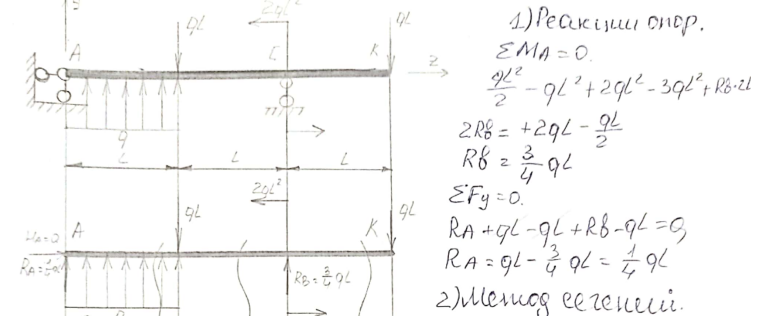 1) Реакции опор.
ΣMA=0.
qL²/2 - qL² + 2qL² - 3qL² + RB·2L
2RB = +2qL - qL/2
RB = 3/4 qL
ΣFy=0.
RA + qL - qL + RB - qL = 0
RA = qL - 3/4 qL = 1/4 qL
2) Метод сечений.
2qL²
qL
qL
A
C
K
z
q
L
L
L
2qL²
qL
qL
A
K
HA=0
RB = 3/4 qL